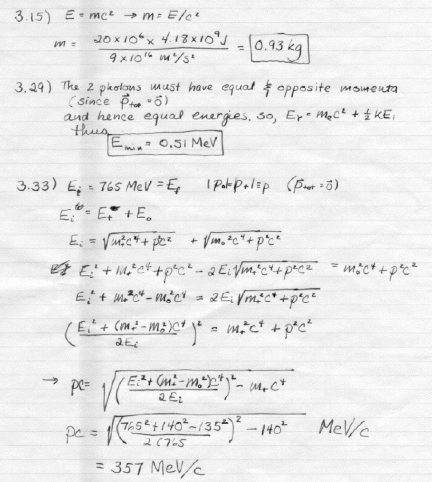 3.15) E = mc² → m = E/c²
m = 20×10⁶ × 4.18×10⁹ J / 9×10¹⁶ m²/s² = 0.93 kg
3.29) The 2 photons must have equal & opposite momenta
(since p⃗tot = 0⃗)
and hence equal energies. So, Eγ = m₀c² + ½ KE,
thus
Emin = 0.51 MeV
3.33) Ei = 765 MeV = Ef |p₀|=|p₊|≡p (p⃗tot = 0⃗)
Ei = E₊ + E₀
Ei = √(m₊²c⁴ + p²c²) + √(m₀²c⁴ + p²c²)
Ei² + m₊²c⁴ + p²c² - 2Ei√(m₊²c⁴ + p²c²) = m₀²c⁴ + p²c²
Ei² + m₊²c⁴ - m₀²c⁴ = 2Ei√(m₊²c⁴ + p²c²)
(Ei² + (m₊² - m₀²)c⁴ / 2Ei)² = m₊²c⁴ + p²c²
→ pc = √((Ei² + (m₊² - m₀²)c⁴ / 2Ei)² - m₊c⁴)
pc = √((765² + 140² - 135² / 2(765)² - 140²) MeV/c
= 357 MeV/c